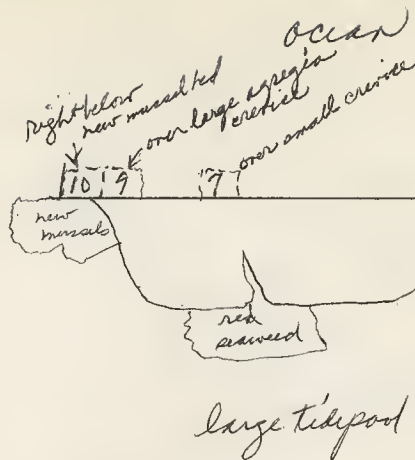 Ocean
right below
new mussel bed
over large agregia
crevice
over small crevice
10 9 7
new
mussels
red
seaweed
large tidepool